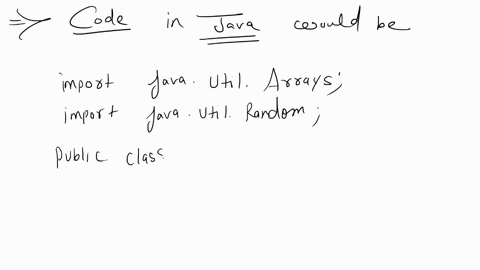 => Code in Java would be
import java.util.Arrays;
import java.util.Random;
public class